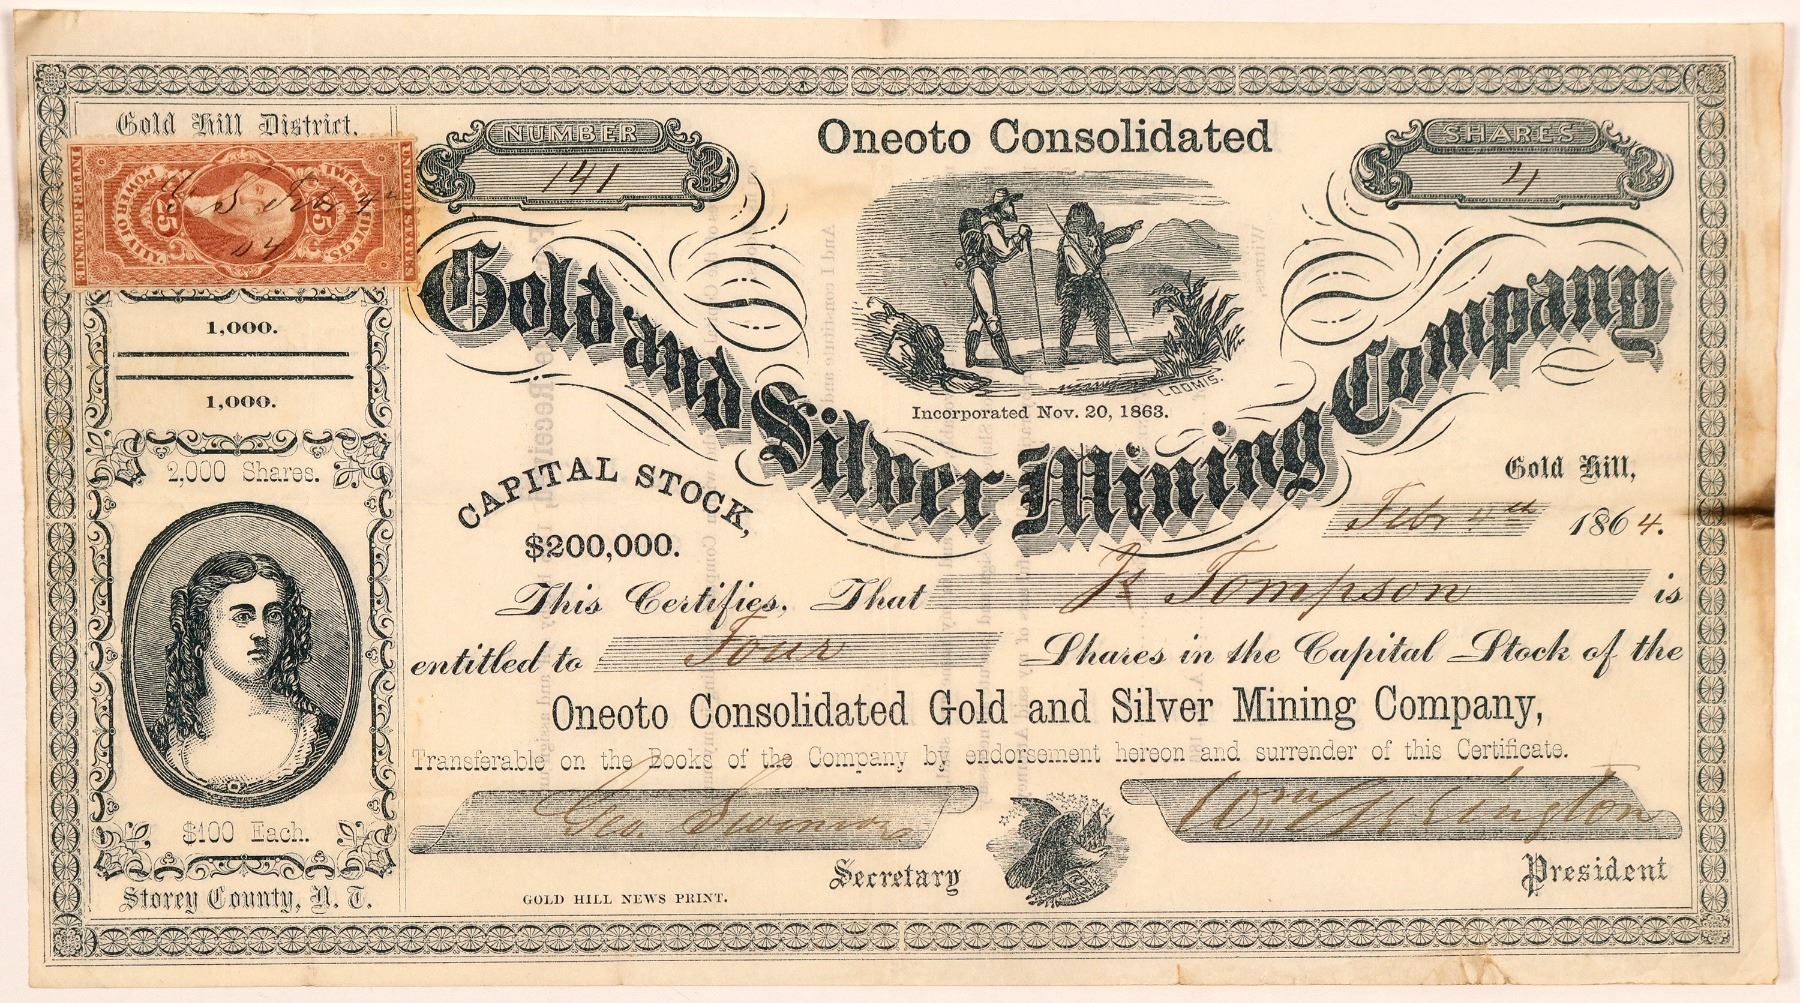 Gold Hill District.
UNITED STATES
INTER. REVENUE
25
25
G S Feb 4th
64
1,000.
1,000.
2,000 Shares.
$100 Each.
Storey County, N. T.
NUMBER
141
Oneoto Consolidated
SHARES
4
Gold and Silver Mining Company
LOOMIS.
Incorporated Nov. 20, 1863.
CAPITAL STOCK,
$200,000.
Gold Hill,
Feb 4th 1864.
This Certifies, That Tompson is
entitled to Four Shares in the Capital Stock of the
Oneoto Consolidated Gold and Silver Mining Company,
Transferable on the Books of the Company by endorsement hereon and surrender of this Certificate.
Geo. Wm
Secretary
President
GOLD HILL NEWS PRINT.